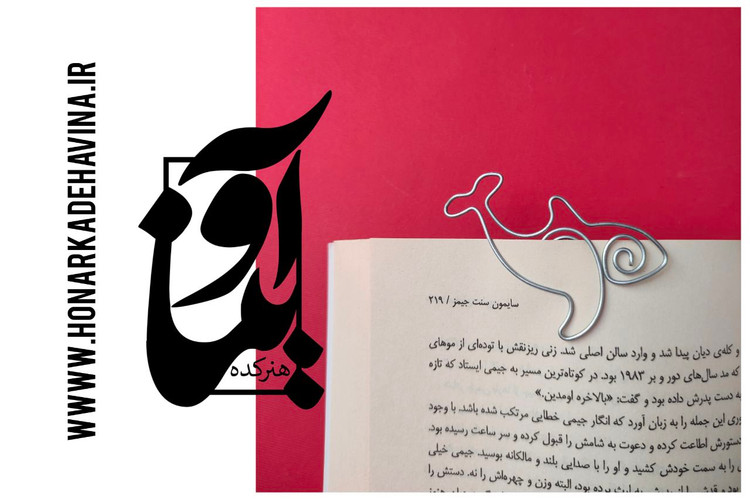 WWW.HONARKADEHAVINA.IR
آوینا
هنرکده
سایمون سنت جیمز / ۲۱۹
و کله‌ی دیان پیدا شد و وارد سالن اصلی شد. زنی ریزنقش با توده‌ای از موهای
که مد سال‌های دور و بر ۱۹۸۳ بود. در کوتاه‌ترین مسیر به جیمی ایستاد که تازه
به دست پدرش داده بود و گفت: «بالاخره اومدین.»
وری این جمله را به زبان آورد که انگار جیمی خطایی مرتکب شده باشد. با وجود
دستورش اطاعت کرده و دعوت به شامش را قبول کرده و سر ساعت رسیده بود.
را به سمت خودش کشید و او را با صدایی بلند و مالکانه بوسید. جیمی خیلی
از پدرش به ارث برده بود، البته وزن و چهره‌اش را نه. دستش را